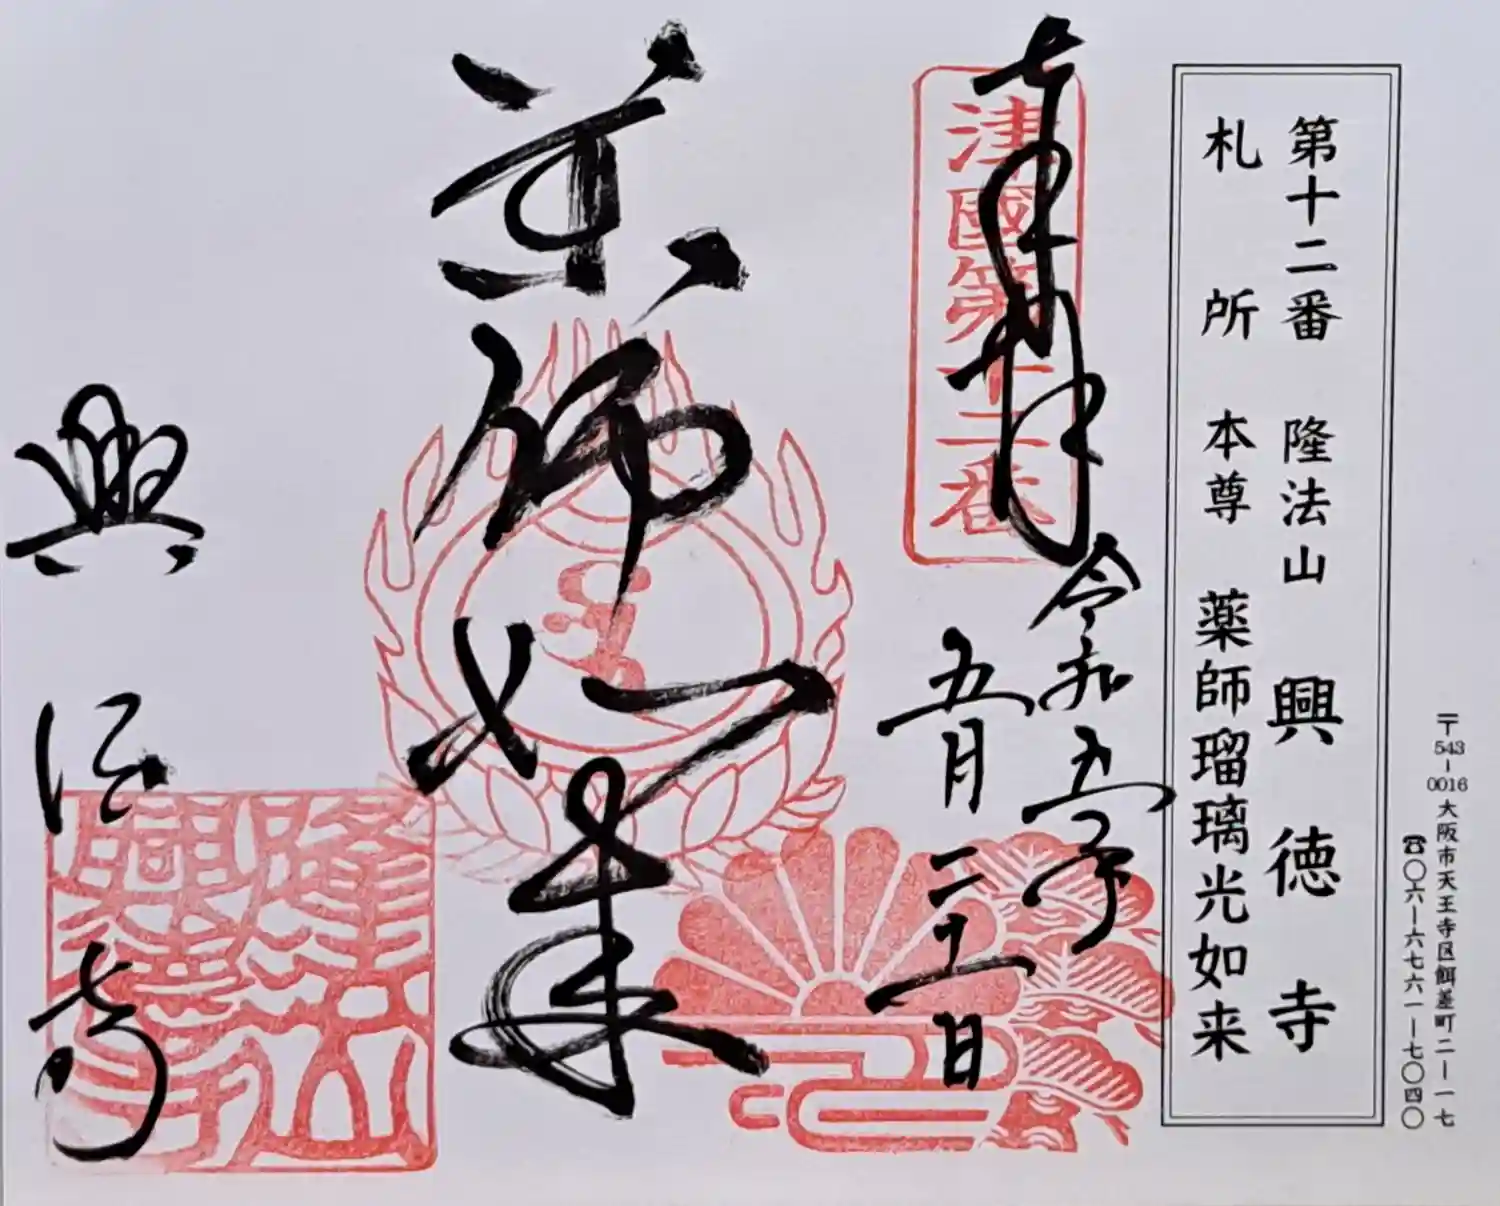 〒543-0016 大阪市天王寺区餌差町二ー一七
☎〇六ー六七六一ー七〇四〇
第十二番 隆法山 興徳寺
札所 本尊 薬師瑠璃光如来
奉拝
津國第十二番
令和五年
五月二十一日
薬師如来
興徳寺
隆法山
興德寺